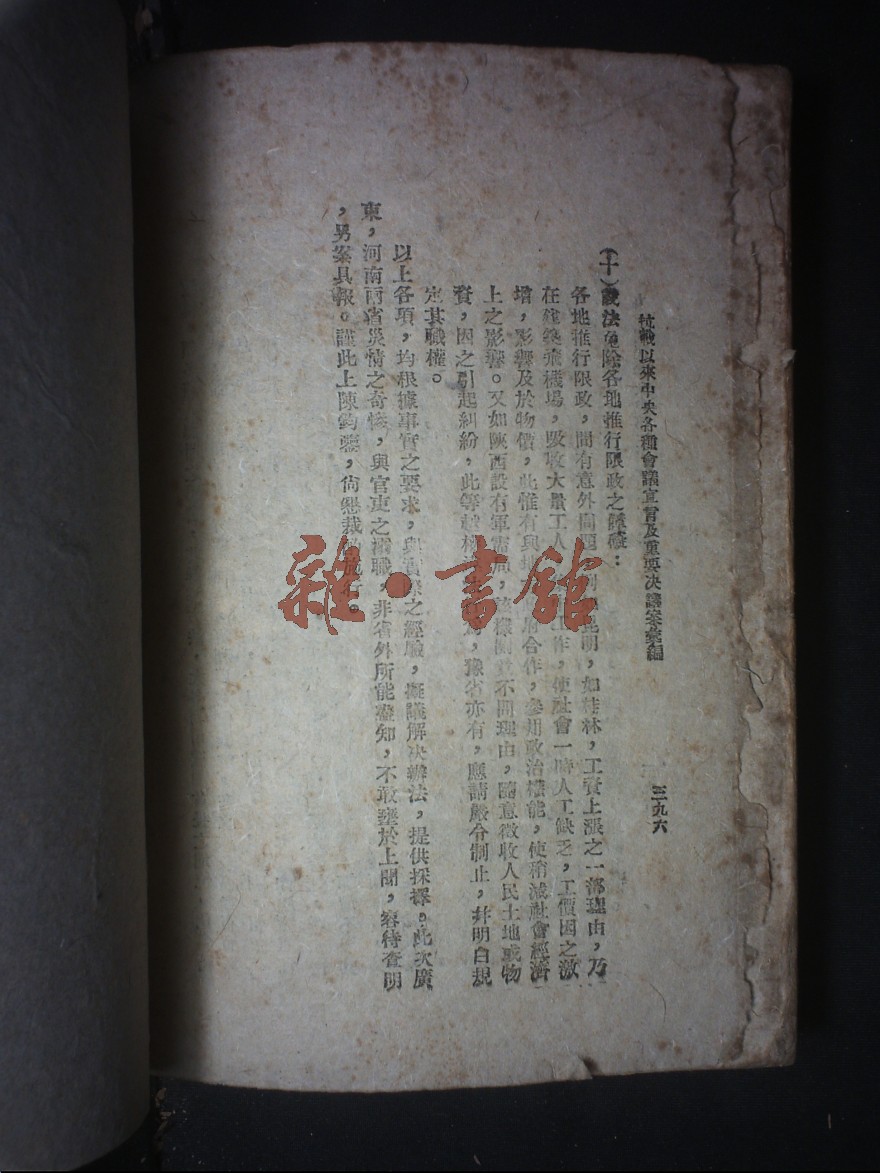 抗戰以來中央各種會議宣言及重要决議案彙編
三九六
(十)設法免除各地推行限政之障礙：
各地推行限政，間有意外問題，明，如桂林，工資上漲之一部理由，乃
在建築飛機場，吸收大量工人作，使社會一時人工缺乏，工價因之激
增，影響及於物價，此惟有與合作，參用政治權能，使稍減社會經濟
上之影響。又如陝西設有軍需局，機關不問理由，隨意徵收人民土地或物
資，因之引起糾紛，此等，豫省亦有，應請嚴令制止，并明白規
定其職權。
以上各項，均根據事實之要求，與實際之經驗，擬議解决辦法，提供採擇。此次廣
東，河南兩省災情之奇慘，與官吏之溺職，非省外所能盡知，不敢壅於上聞，容待查明
，另案具報。謹此上陳鈞鑒，尙懇裁行。
雜·書館